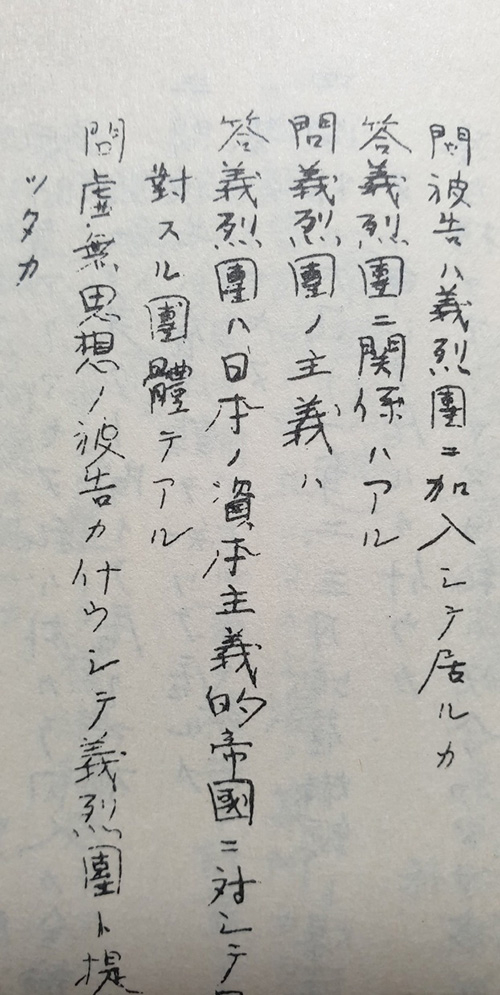 問被告ハ義烈團ニ加入シテ居ルカ
答義烈團ニ関係ハアル
問義烈團ノ主義ハ
答義烈團ハ日本ノ資本主義的帝國ニ対シテ
對スル團體テアル
問虚無思想ノ被告カ什ウシテ義烈團ト提
ツタカ